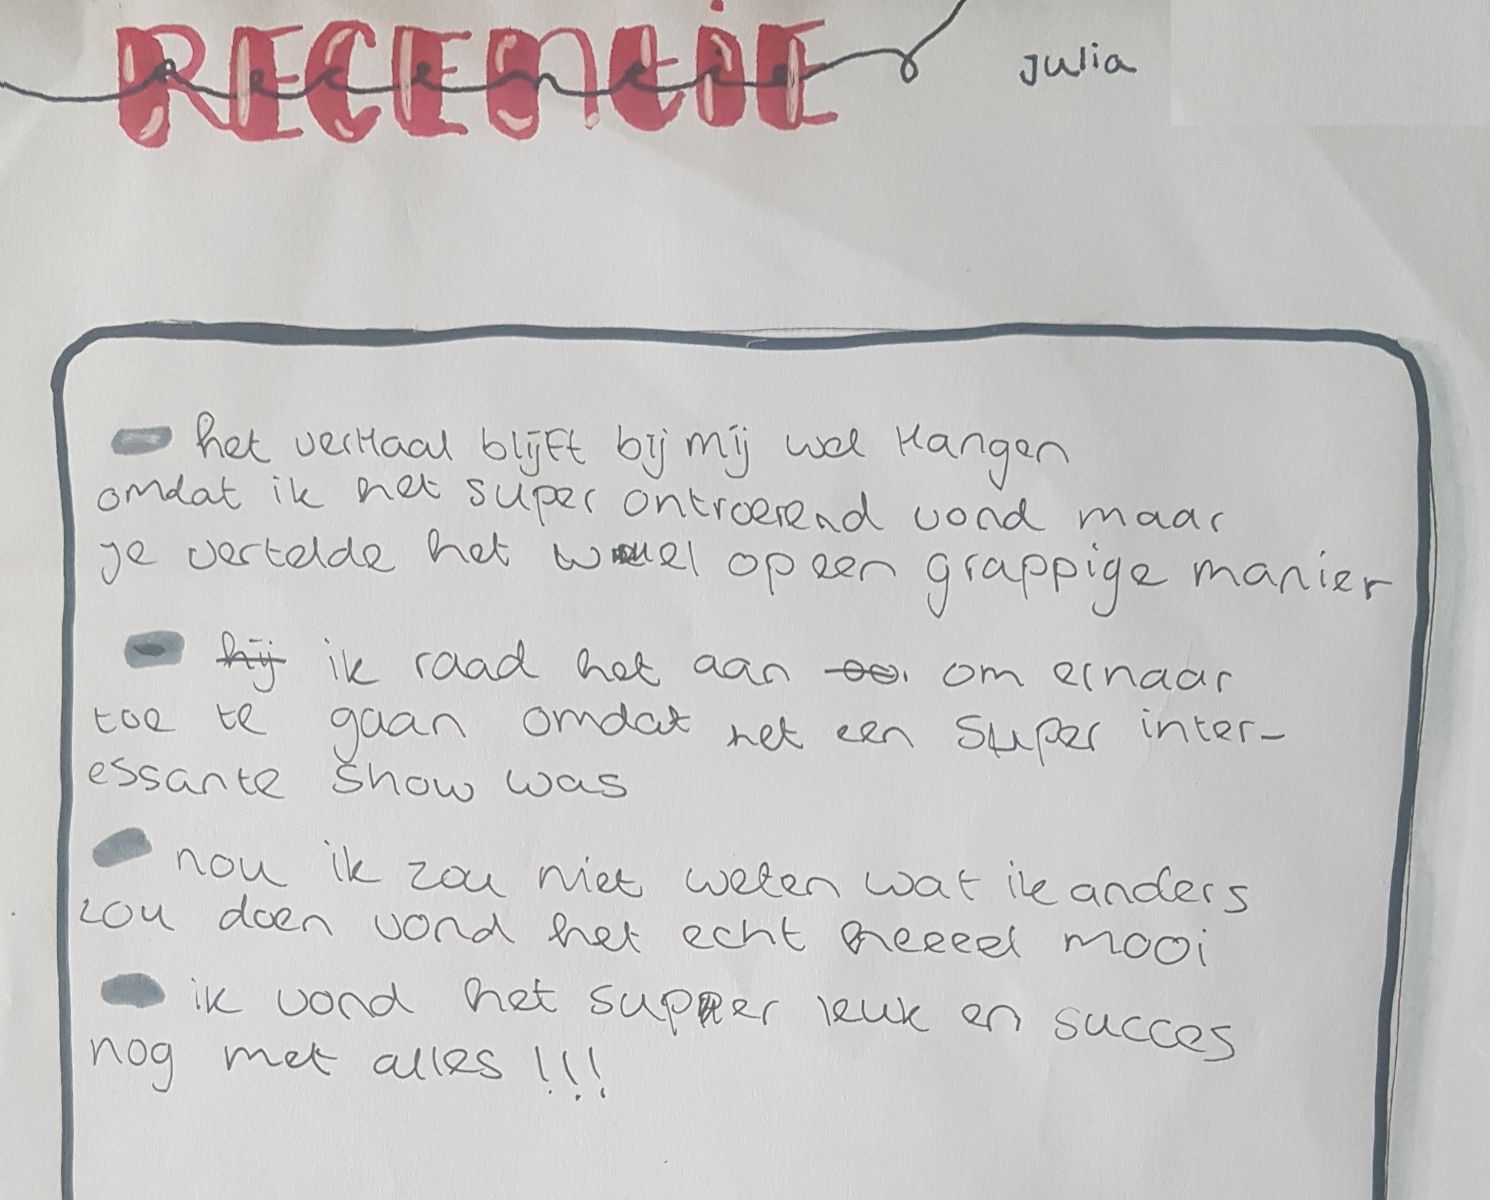 RECENtiE
recentie
Julia
het verHaal blijft bij mij wel Hangen
omdat ik het super ontroerend vond maar
je vertelde het wel op een grappige manier
hij ik raad het aan om ernaar
toe te gaan omdat het een super inter-
essante show was
nou ik zou niet weten wat ik anders
zou doen vond het echt heeeel mooi
ik vond het super leuk en succes
nog met alles !!!